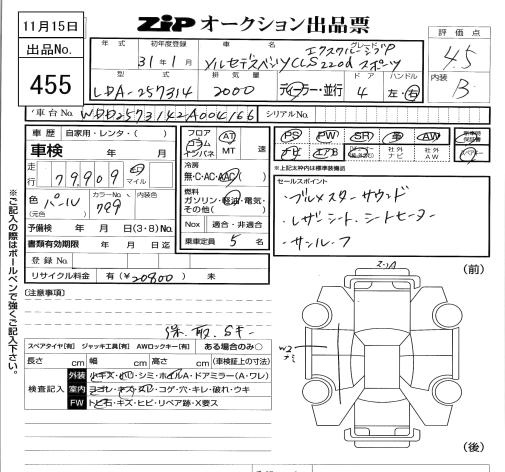 11月15日
ZIP オークション出品票
出品No.
455
年式
初年度登録
31年1月
車名
メルセデスベンツCLS220d スポーツ
グレード
エクスクルーシブP
評価点
4.5
内装
B
型式
LDA-257314
排気量
2000
ディーラー・並行
ドア
4
ハンドル
左・右
車台No.
WDD2573142A004166
シリアルNo.
車歴 自家用・レンタ・( )
車検 年 月
走行
79909 km マイル
色
(元色)
パール
カラーNo.
799
内装色
予備検 年 月 日(3・8)モウ
書類有効期限 年 月 日迄
登録No.
リサイクル料金 有( 20900 ) 未
フロア
コラム
インパネ
AT
MT 速
冷房
無・C・AC・AAC
燃料
ガソリン・軽油・電気・
その他( )
Nox 適合・非適合
乗車定員 5 名
PS PW SR 革 AW
ナビ エアB
社外ナビ
社外AW
※上記太枠内は標準装備品
セールスポイント
・ブルメスターサウンド
・レザーシート、シートヒーター
・サンルーフ
[注意事項]
保 取 Sキー
スペアタイヤ[有] ジャッキ工具[有] AWロックキー[有] ある場合のみ○
長さ cm 幅 cm 高さ cm (車検証上の寸法)
検査記入
外装 小キズ・凹・シミ・ホイルA・ドアミラー(A・ワレ)
室内 ヨゴレ・キズ・スレ・コゲ・穴・キレ・破れ・ウキ
FW トビ石・キズ・ヒビ・リペア跡・X要ス
※ご記入の際はボールペンで強くご記入下さい。
(前)
W2
(後)